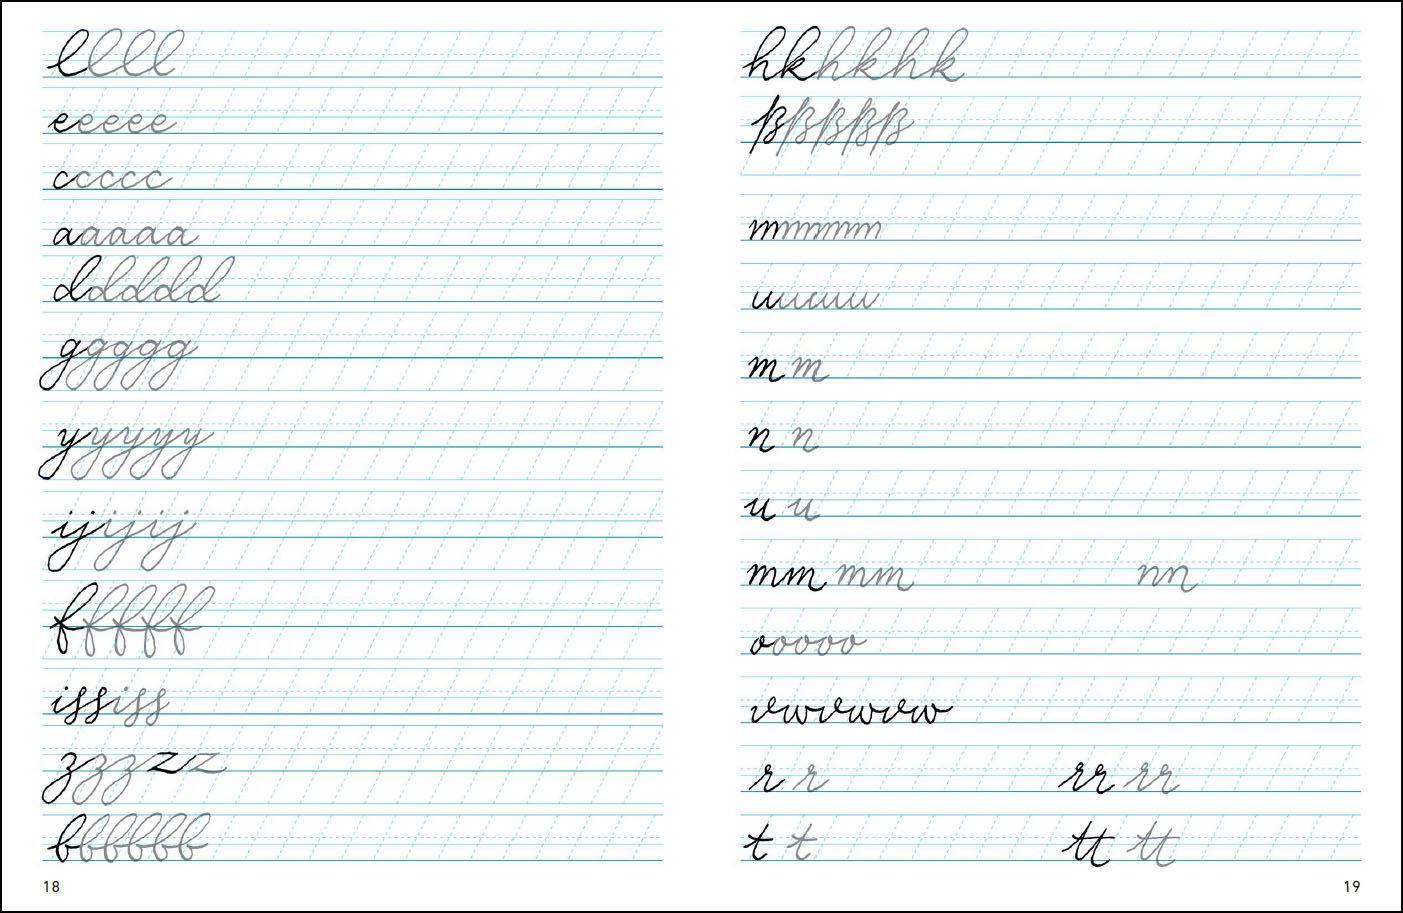 lllll
eeeee
ccccc
aaaaa
ddddd
ggggg
yyyyy
ijijij
fffff
ississ
zzzzz
bbbbb
18
hkhkhk
ßßßßß
mmmmm
uuuuu
m m
n n
u u
mm mm nn
ooooo
vwvwvw
r r rr rr
t t tt tt
19